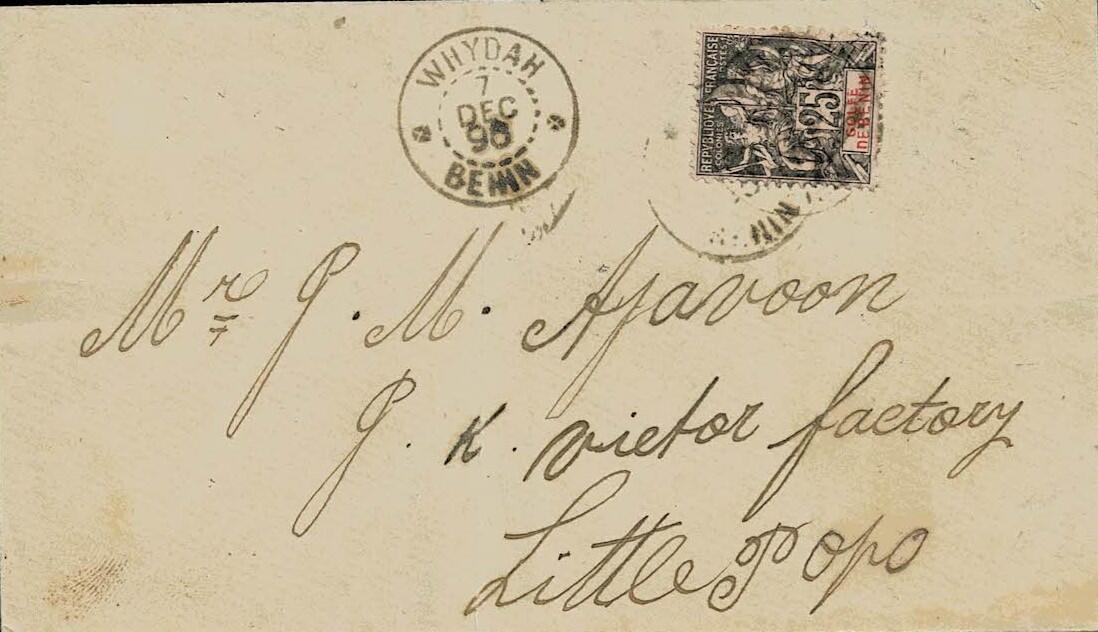 WHYDAH
7
DEC
90
BENIN
REPVBLIQVE FRANÇAISE
COLONIES POSTES
25
GOLFE
DE BENIN
NIN
Mr J. M. Ajavoon
J. K. victor factory
Little Popo